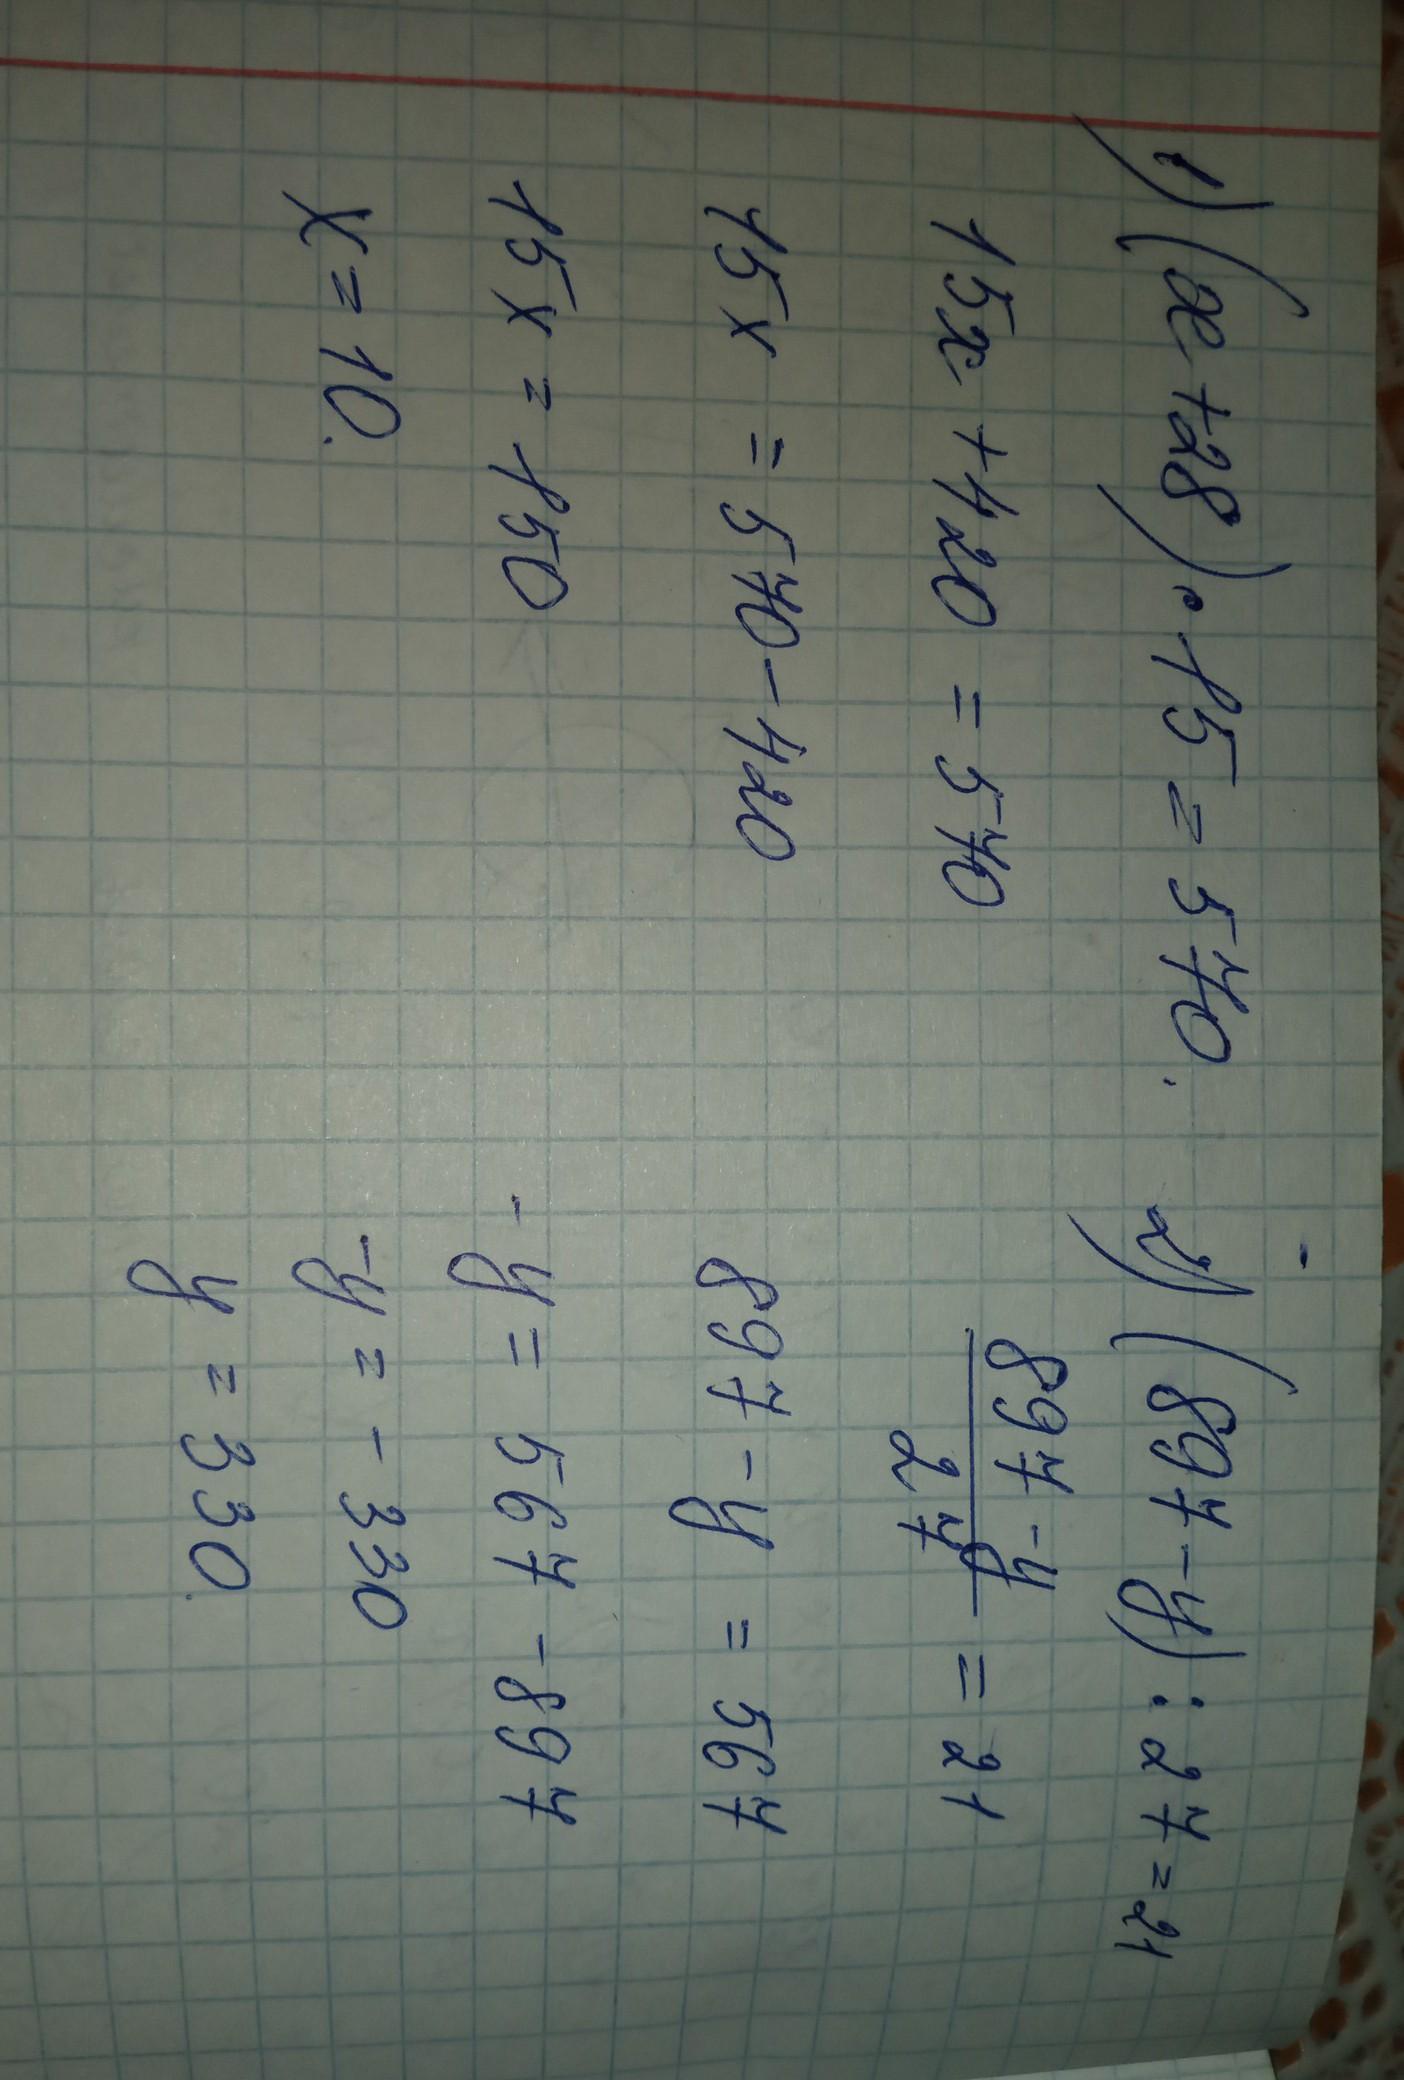 1) (x+28)·15=570.
15x+420=570
15x=570-420
15x=150
x=10.
2) (897-y):27=21
897-y
27
=21
897-y=567
-y=567-897
-y=-330
y=330.